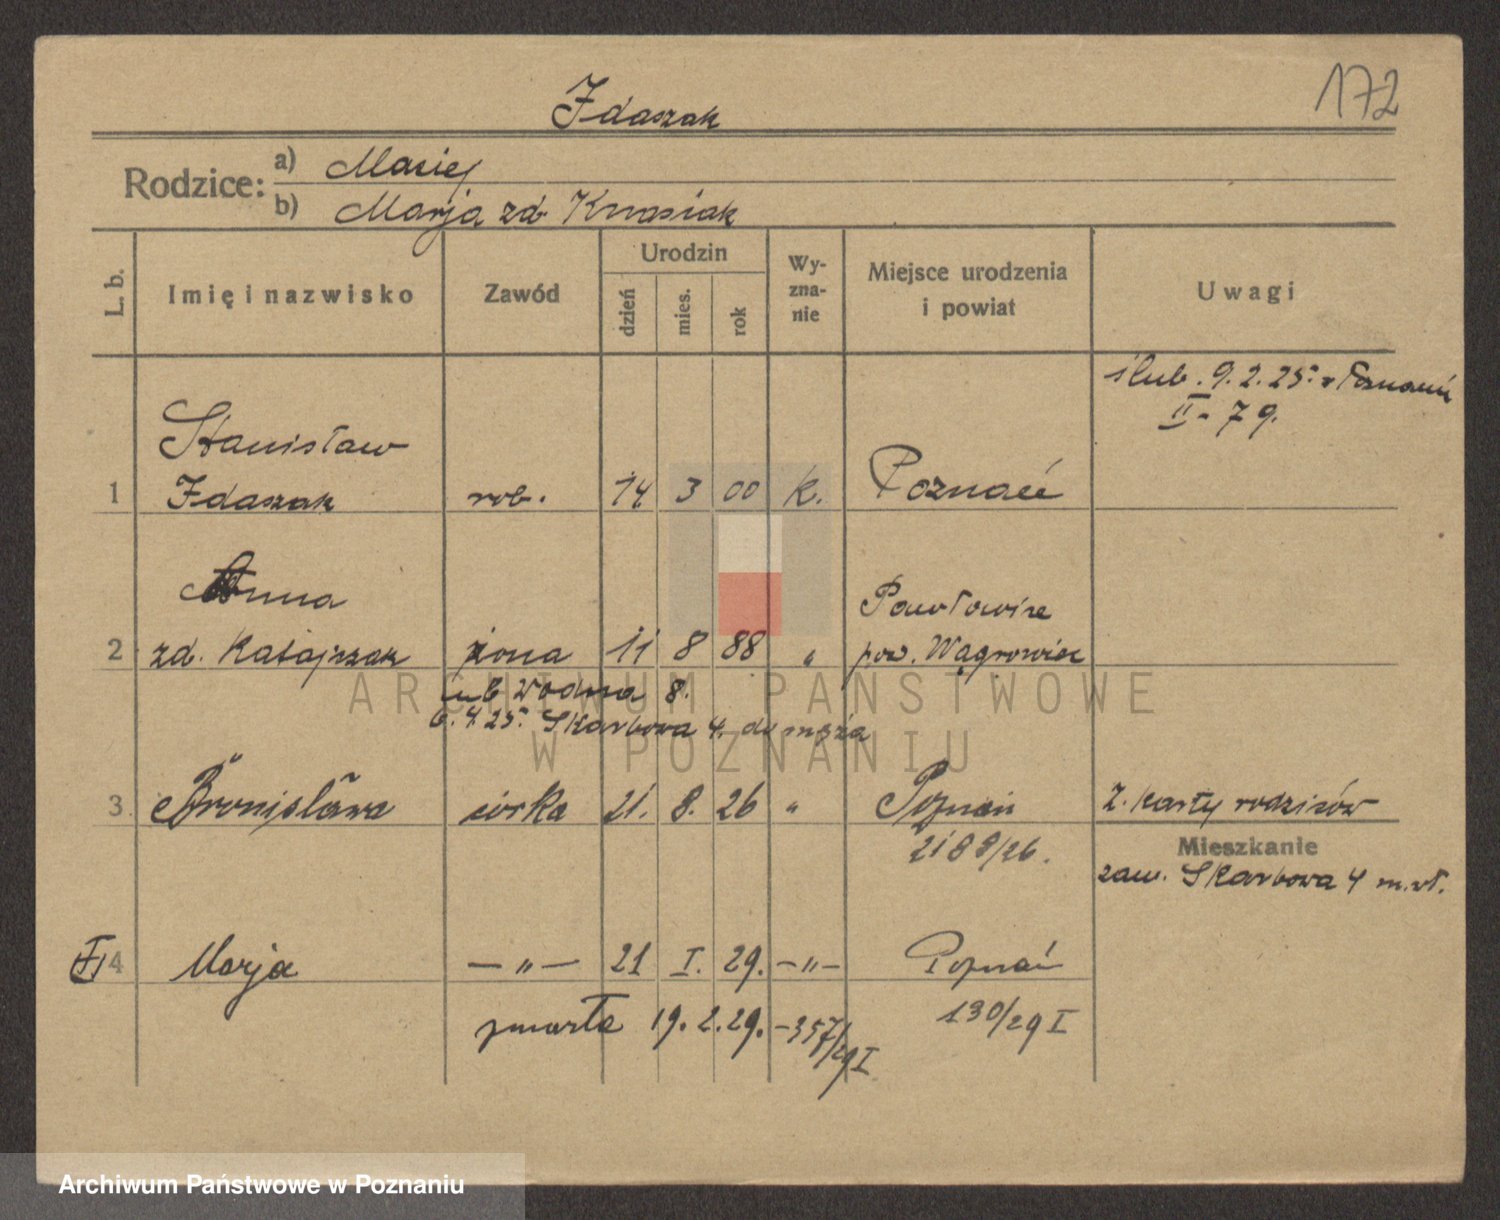 172
Idaszak
Rodzice: a) Maciej
b) Marja zd. Knasiak
L. b.
Imię i nazwisko
Zawód
Urodzin
dzień
mies.
rok
Wy-
zna-
nie
Miejsce urodzenia
i powiat
Uwagi
ślub. 9.2.25. w Poznaniu
II - 79.
Stanisław
1 Idaszak rob. 14 3 00 k. Poznań
Anna
Pawłowice
2 zd. Katajczak żona 11 8 88 " pow. Wągrowiec
Wodna 8.
6.4.25. Skarbowa 4. do męża
3 Bronisława córka 21. 8. 26 " Poznań Z. karty rodziców
2188/26.
Mieszkanie
zam. Skarbowa 4 m.
4 Marja — " — 21 I. 29. — " — Poznań
130/29 I
zmarła 19. 2. 29. - 357/29 I
ARCHIWUM PAŃSTWOWE
W POZNANIU
Archiwum Państwowe w Poznaniu